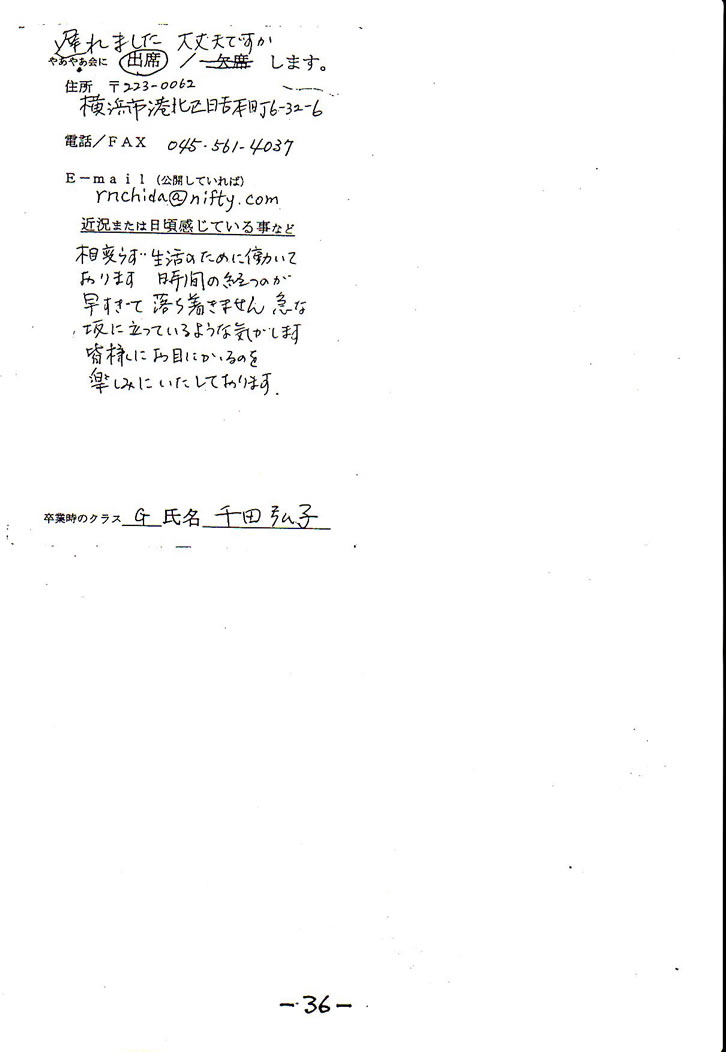 遅れました 大丈夫ですか
やあやあ会に 出席 / 欠席 します。
住所 〒223-0062
横浜市港北区日吉本町6-32-6
電話/FAX 045-561-4037
E-mail (公開していれば)
rnchida@nifty.com
近況または日頃感じている事など
相変らず生活のために働いて
おります 時間の経つのが
早すぎて 落ち着きません 急な
坂に立っているような気がします
皆様にお目にかかるのを
楽しみにいたしております.
卒業時のクラス G 氏名 千田弘子
-36-